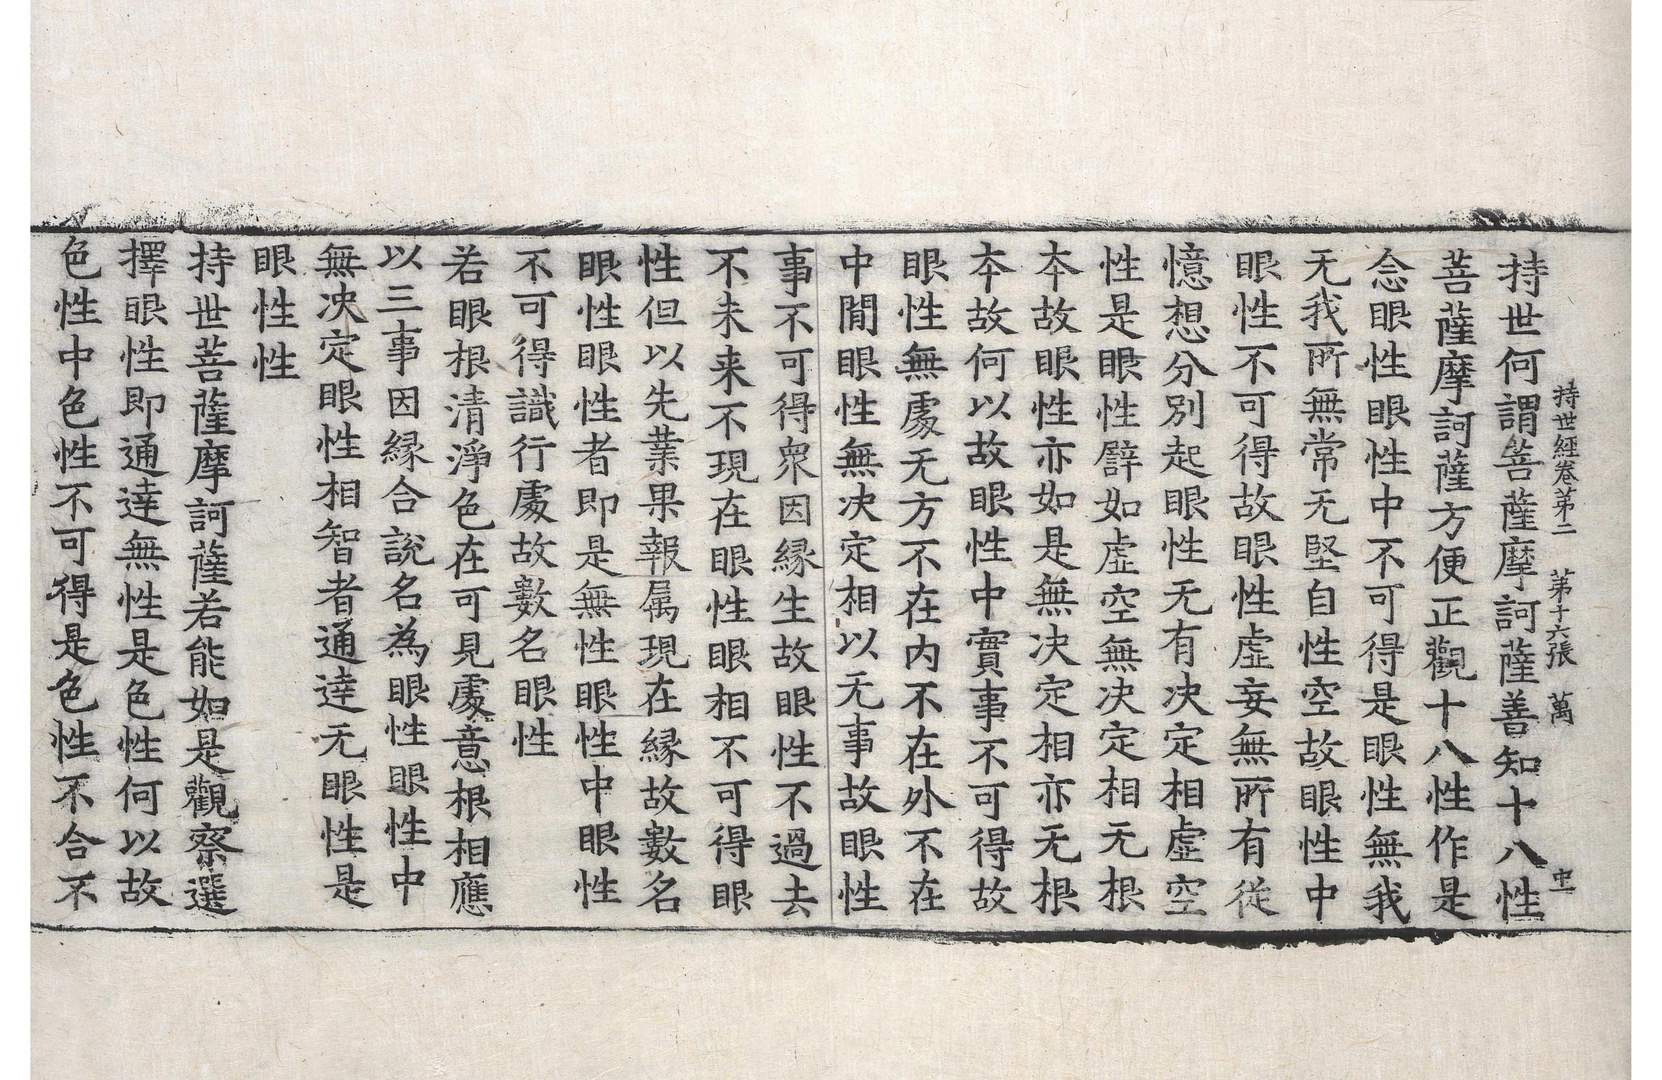 持世經卷第二　第十六張　萬
持世何謂菩薩摩訶薩善知十八性
菩薩摩訶薩方便正觀十八性作是
念眼性眼性中不可得是眼性無我
无我所無常无堅自性空故眼性中
眼性不可得故眼性虛妄無所有從
憶想分別起眼性无有决定相虛空
性是眼性譬如虛空無决定相无根
夲故眼性亦如是無决定相亦无根
夲故何以故眼性中實事不可得故
眼性無處无方不在内不在外不在
中閒眼性無决定相以无事故眼性
事不可得衆因縁生故眼性不過去
不未来不現在眼性眼相不可得眼
性但以先業果報属現在縁故數名
眼性眼性者即是無性眼性中眼性
不可得識行處故數名眼性
若眼根清淨色在可見處意根相應
以三事因縁合說名為眼性眼性中
無决定眼性相智者通達无眼性是
眼性性
持世菩薩摩訶薩若能如是觀察選
擇眼性即通達無性是色性何以故
色性中色性不可得是色性不合不